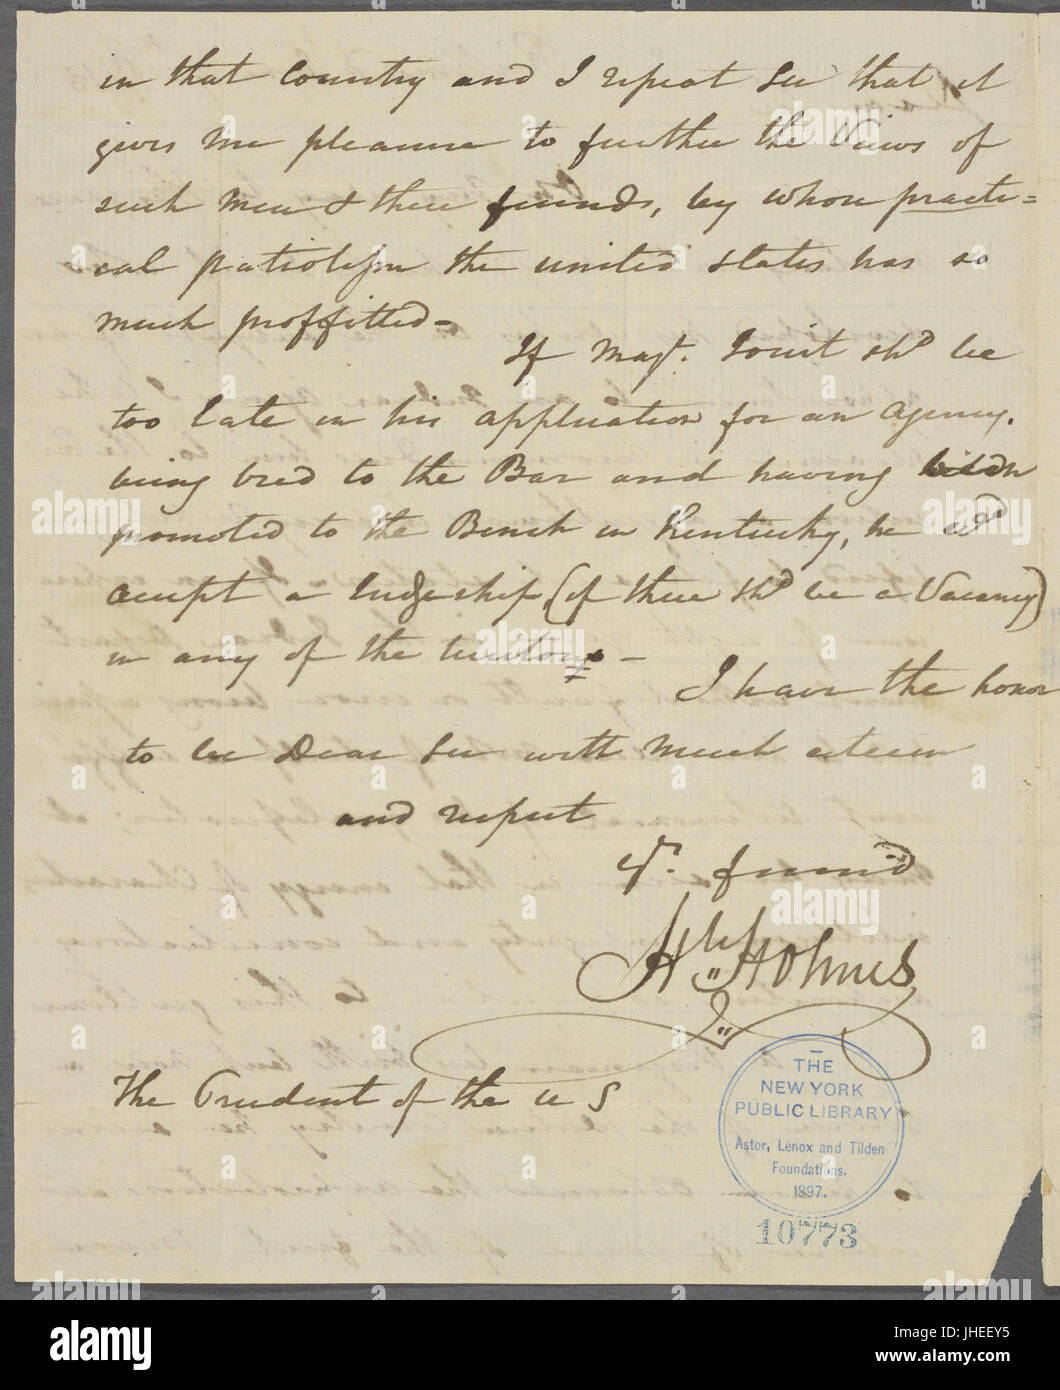 in that Country and I repeat Sir that it
gives me pleasure to further the Views of
such men & their friends, by whose practi=
cal patriotism the united states has so
much proffitted-
If Majr. shd be
too late in his application for an Agency,
being bred to the Bar and having been
promoted to the Bench in Kentucky, he wd
accept a Judgeship, (if there shd be a Vacancy)
in any of the territorys -
I have the honor
to be Dear Sir with much esteem
and respect
yr. friend
Holmes
The President of the U S
THE
NEW YORK
PUBLIC LIBRARY
Astor, Lenox and Tilden
Foundations.
1897.
10773
alamy stock photo
JHEEY5
www.alamy.com